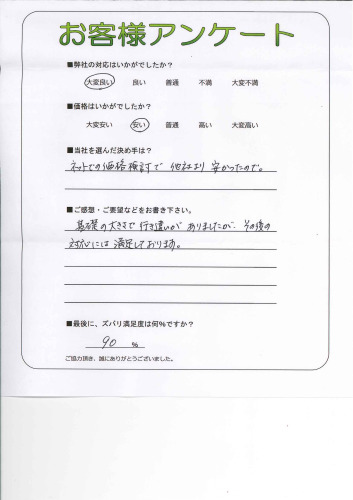 お客様アンケート
■弊社の対応はいかがでしたか?
大変良い 良い 普通 不満 大変不満
■価格はいかがでしたか?
大変安い 安い 普通 高い 大変高い
■当社を選んだ決め手は?
ネットでの価格検討で他社より安かったので。
■ご感想・ご要望などをお書き下さい。
基礎の大きさで行き違いがありましたが、その後の
対応には満足しております。
■最後に、ズバリ満足度は何%ですか?
90 %
ご協力頂き、誠にありがとうございました。